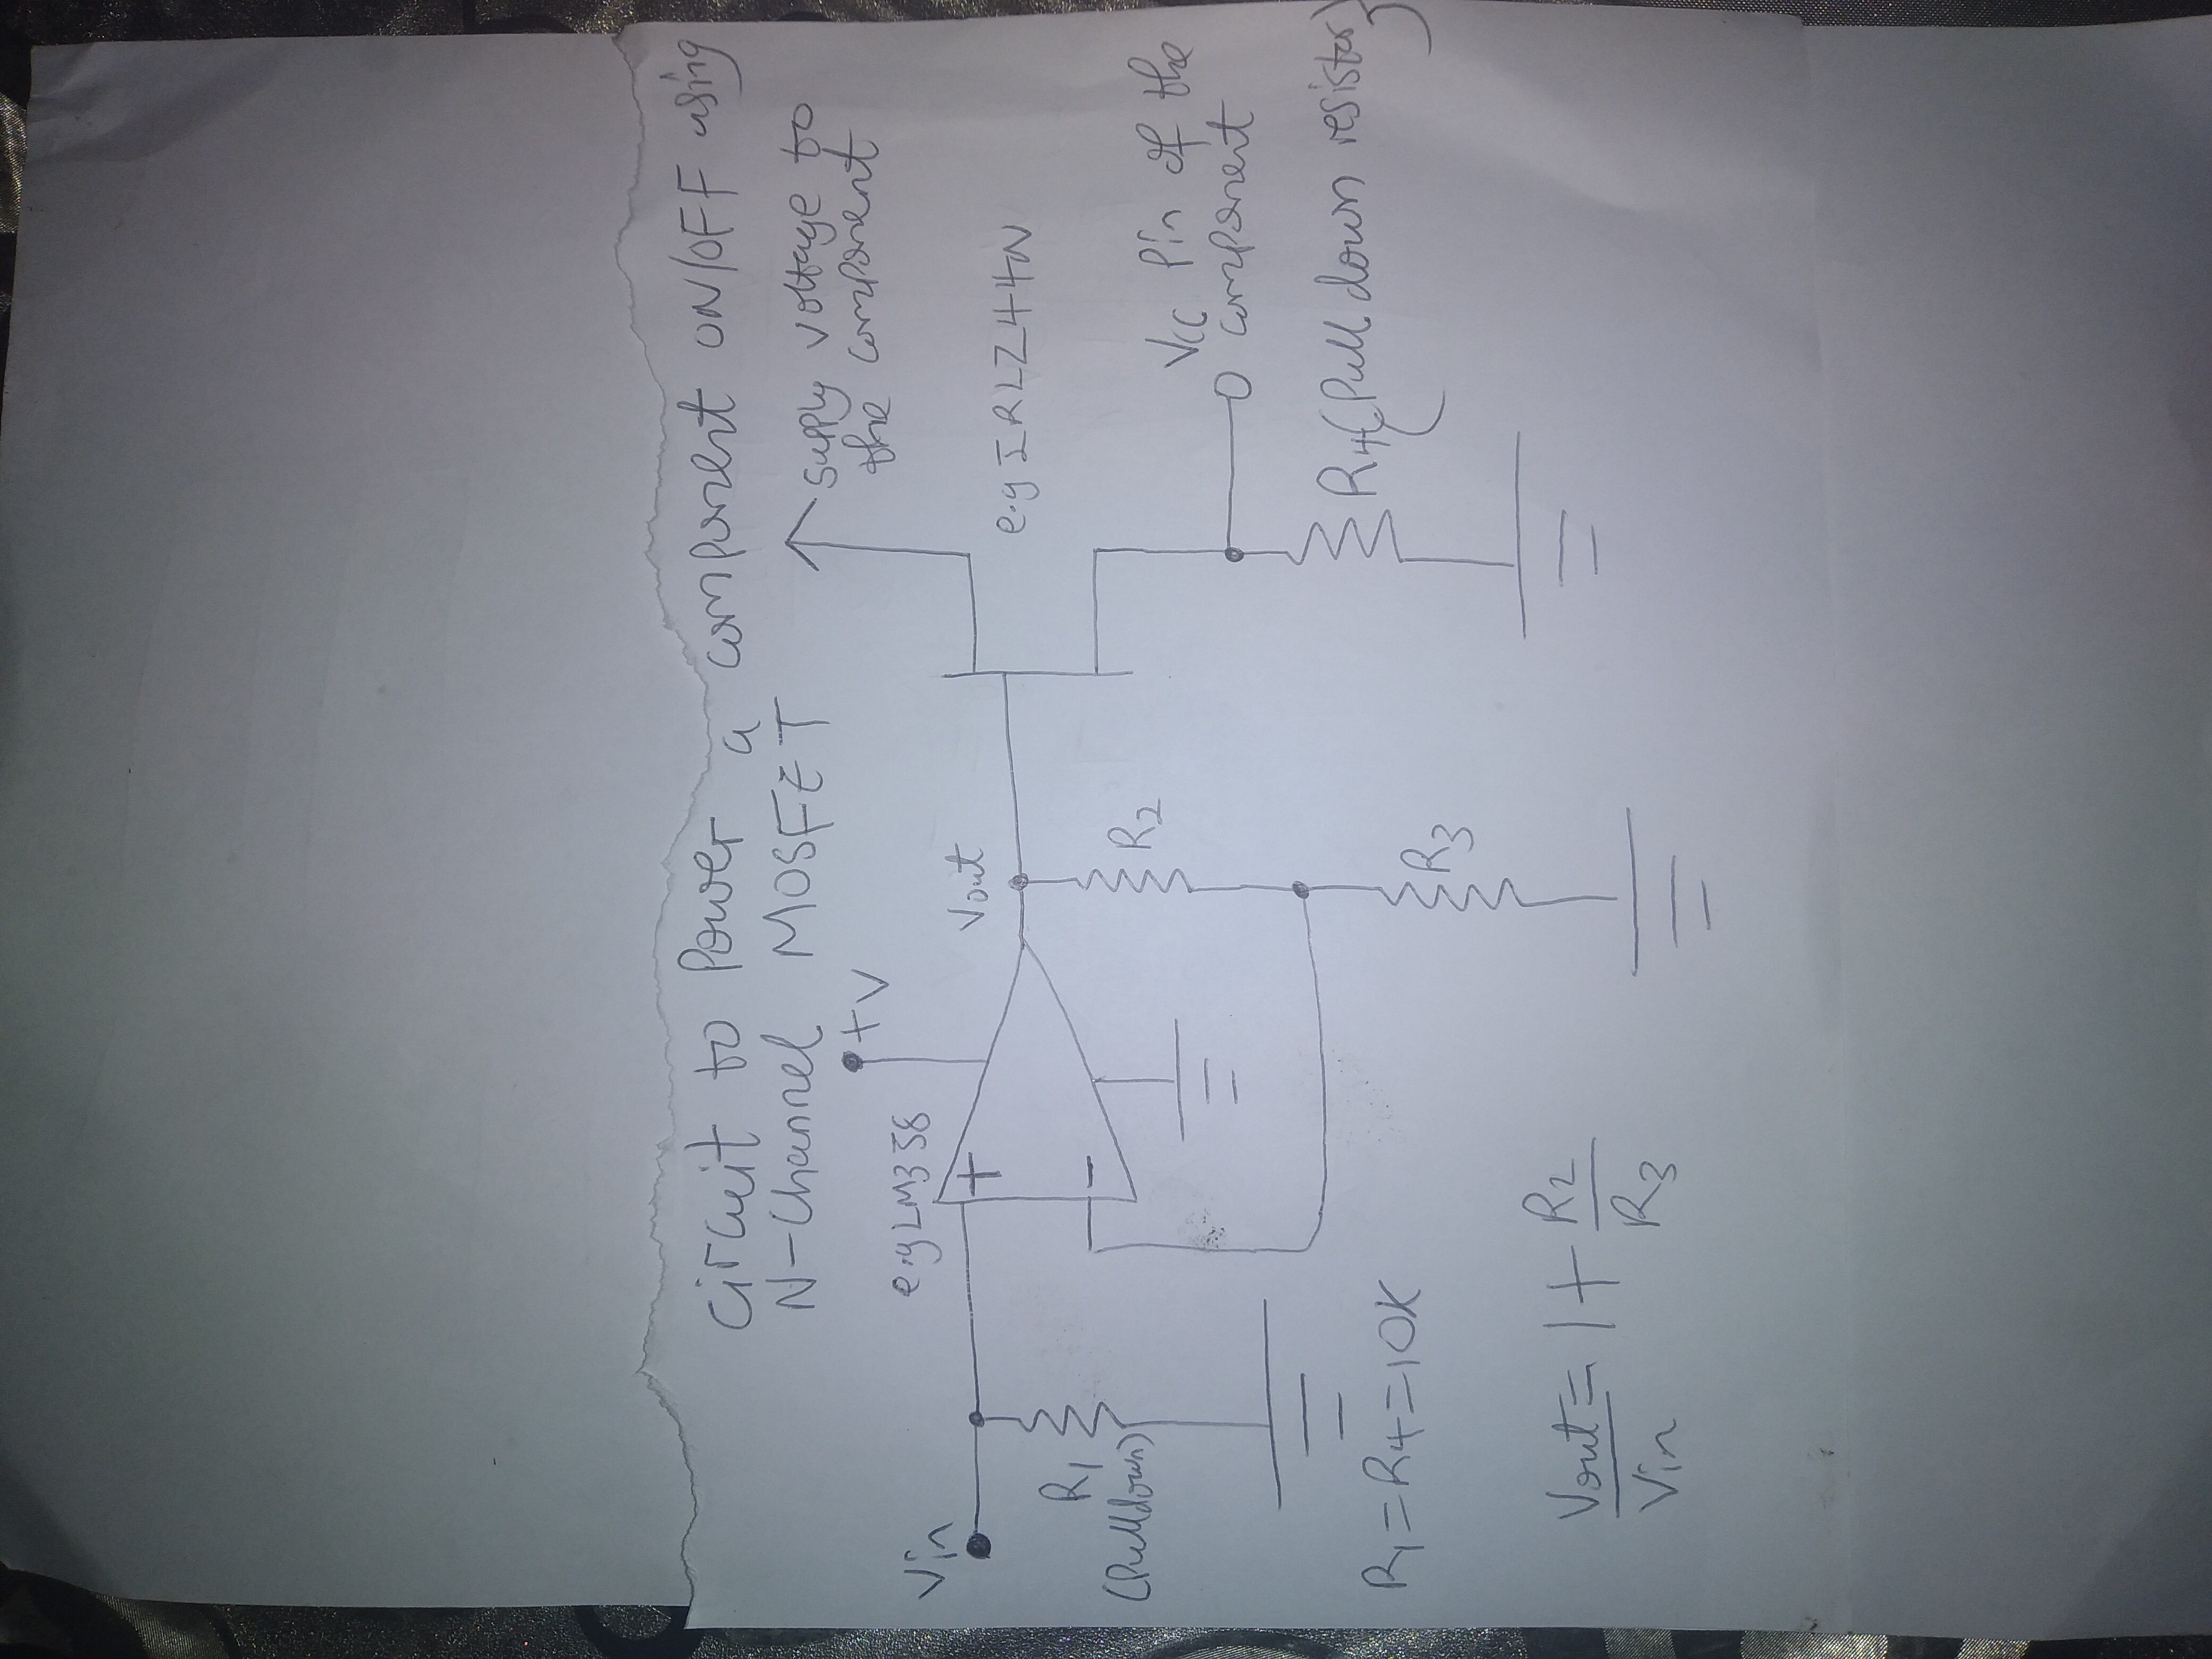 circuit to Power a component ON/OFF using
N-Channel MOSFET
supply voltage to
the component
+V
e.g LM358
Vin
+
Vout
e.g IRLZ44N
R1
(Pulldown)
-
R2
Vcc Pin of the
component
R4 (Pull down resistor)
R1=R4=10K
R3
Vout = 1 + R2
Vin R3